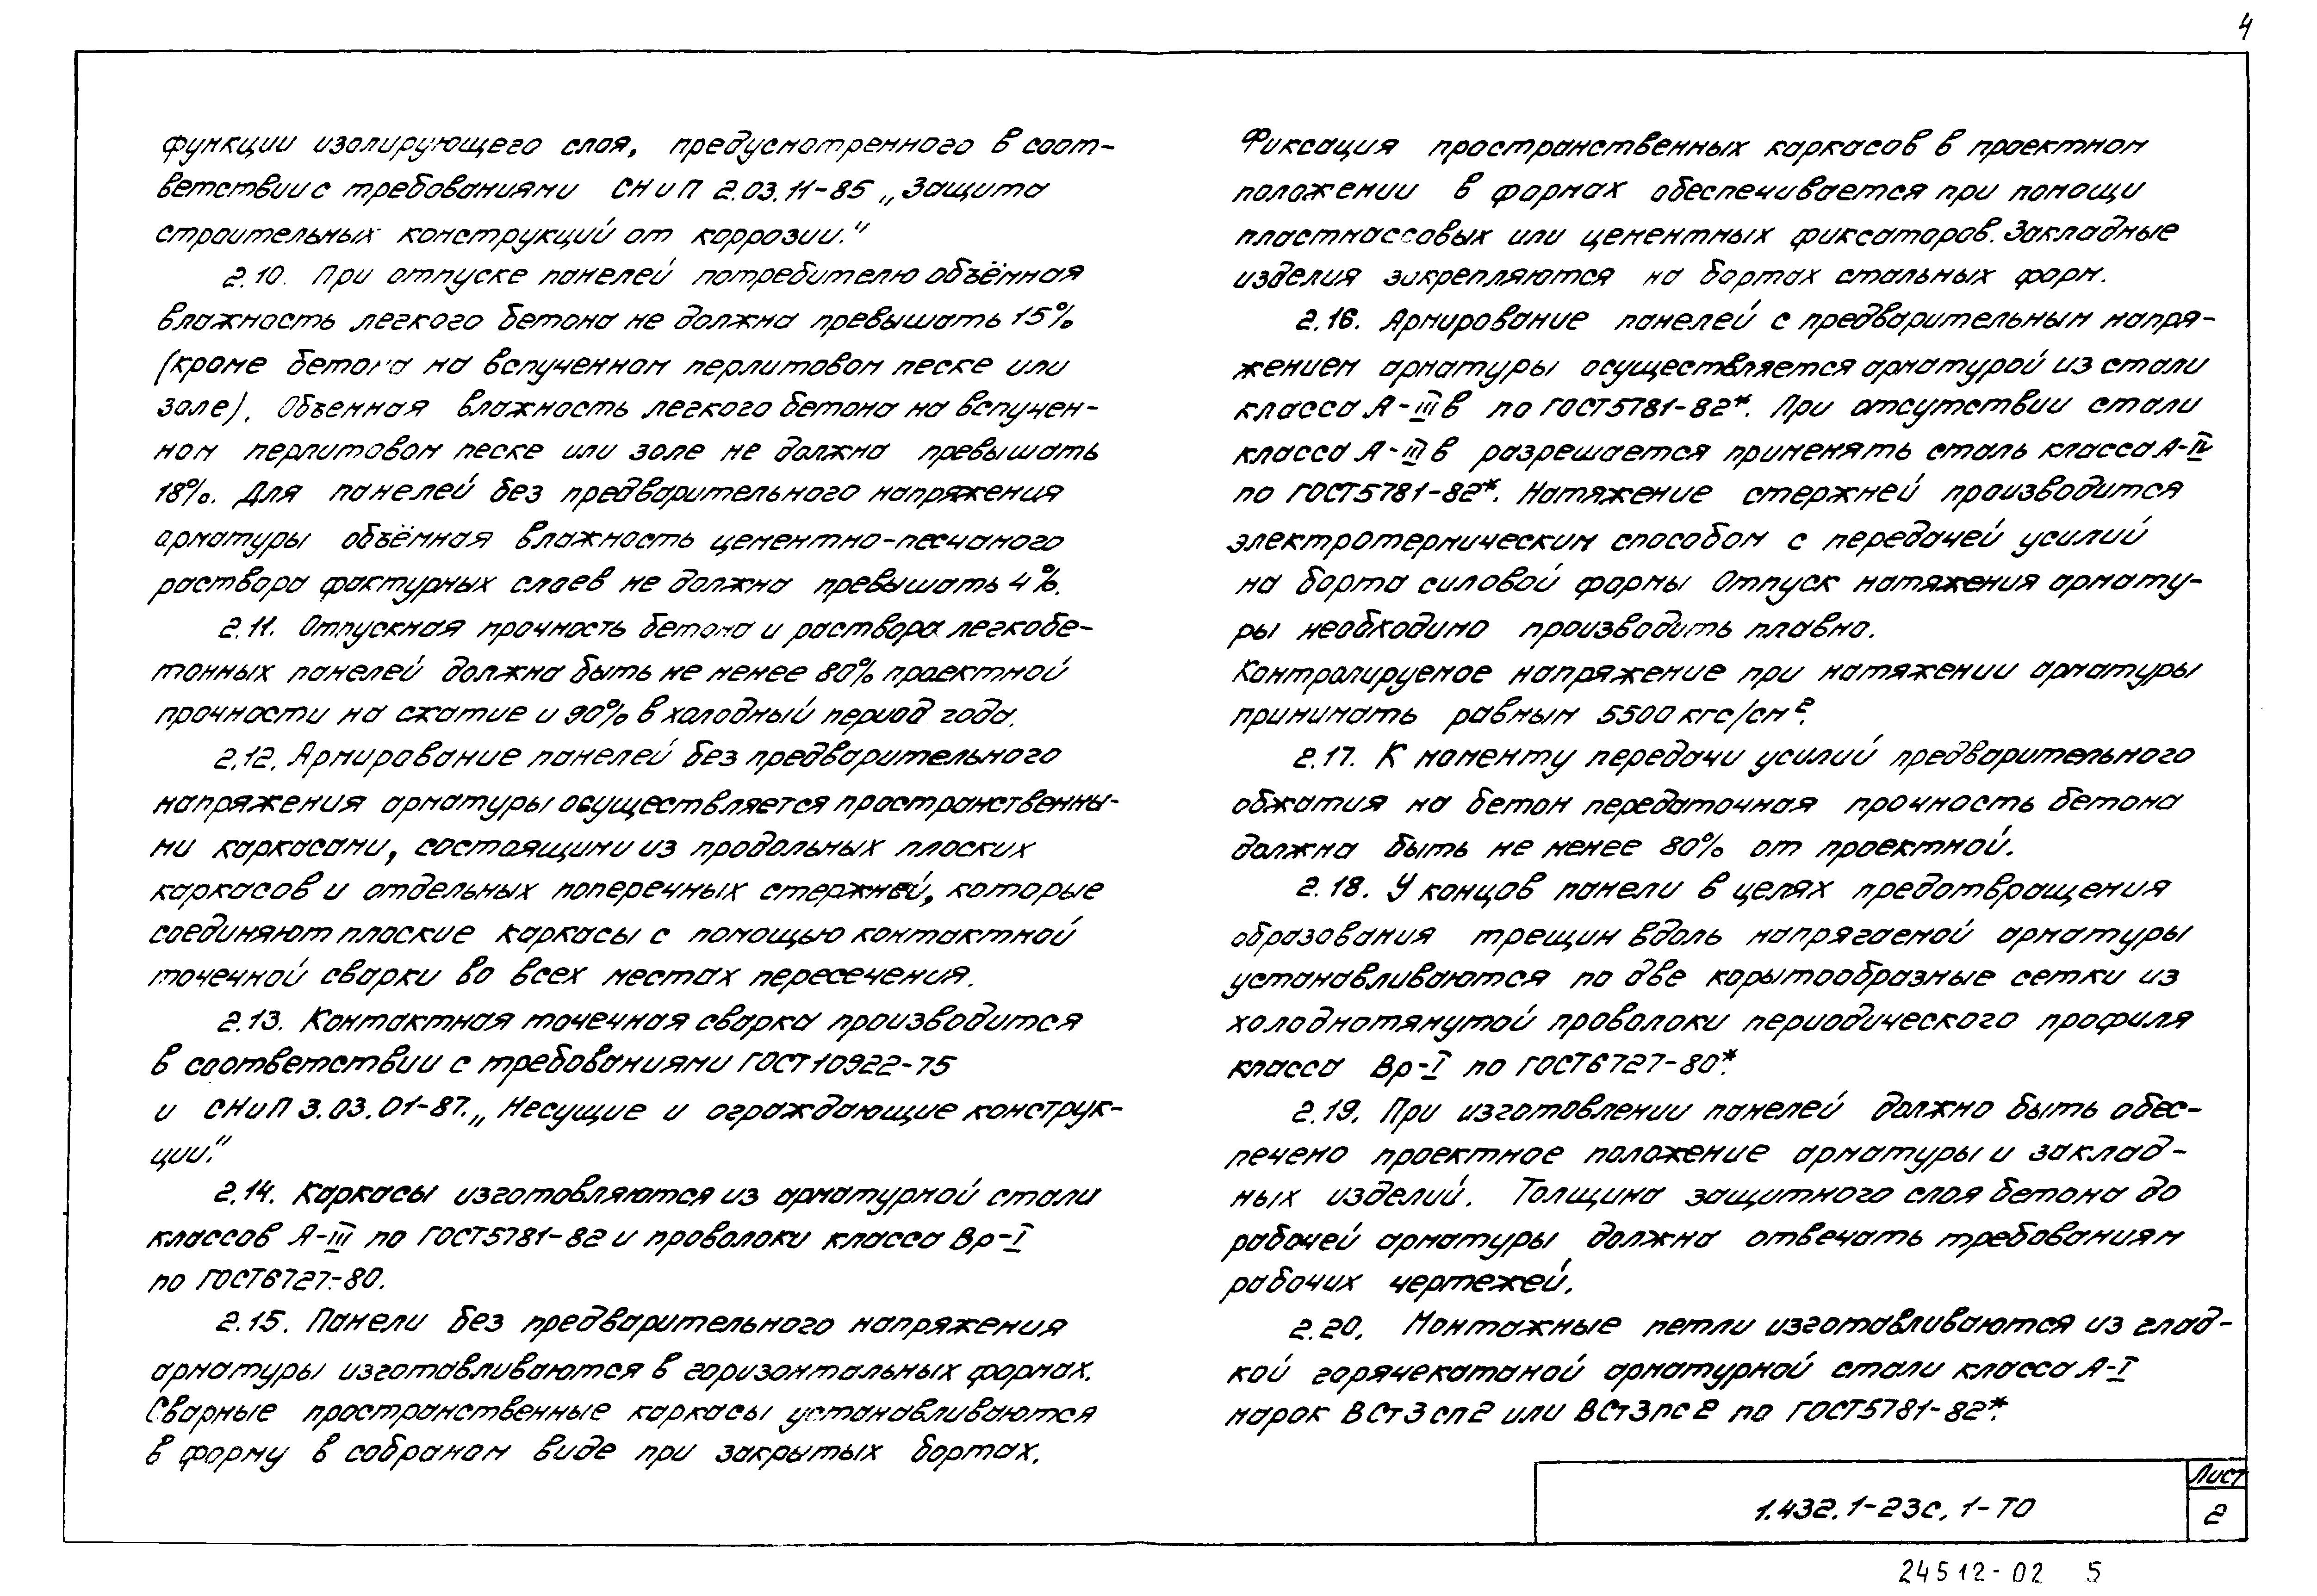 4
функции изолирующего слоя, предусмотренного в соот-
ветствии с требованиями СНиП 2.03.11-85 „Защита
строительных конструкций от коррозии."
2.10. При отпуске панелей потребителю объёмная
влажность легкого бетона не должна превышать 15%
(кроме бетона на вспученном перлитовом песке или
золе). Объемная влажность легкого бетона на вспучен-
ном перлитовом песке или золе не должна превышать
18%. Для панелей без предварительного напряжения
арматуры объёмная влажность цементно-песчаного
раствора фактурных слаев не должна превышать 4%.
2.11. Отпускная прочность бетона и раствора легкобе-
тонных панелей должна быть не менее 80% проектной
прочности на сжатие и 90% в холодный период года.
2.12. Армирование панелей без предварительного
напряжения арматуры осуществляется пространственны-
ми каркасами, состоящими из продольных плоских
каркасов и отдельных поперечных стержней, которые
соединяют плоские каркасы с помощью контактной
точечной сварки во всех местах пересечения.
2.13. Контактная точечная сварка производится
в соответствии с требованиями ГОСТ 10922-75
и СНиП 3.03.01-87. „Несущие и ограждающие конструк-
ции."
2.14. Каркасы изготовляются из арматурной стали
классов А-III по ГОСТ 5781-82 и проволоки класса Вр-I
по ГОСТ 6727-80.
2.15. Панели без предварительного напряжения
арматуры изготавливаются в горизонтальных формах.
Сварные пространственные каркасы устанавливаются
в форму в собраном виде при закрытых бортах.
Фиксация пространственных каркасов в проектном
положении в формах обеспечивается при помощи
пластмассовых или цементных фиксаторов. Закладные
изделия закрепляются на бортах стальных форм.
2.16. Армирование панелей с предварительным напря-
жением арматуры осуществляется арматурой из стали
класса А-IIIв по ГОСТ 5781-82*. При отсутствии стали
класса А-IIIв разрешается применять сталь класса А-IV
по ГОСТ 5781-82*. Натяжение стержней производится
электротермическим способом с передачей усилий
на борта силовой формы Отпуск натяжения армату-
ры необходимо производить плавно.
Контролируемое напряжение при натяжении арматуры
принимать равным 5500 кгс/см².
2.17. К моменту передачи усилий предварительного
обжатия на бетон передаточная прочность бетона
должна быть не менее 80% от проектной.
2.18. У концов панели в целях предотвращения
образования трещин вдоль напрягаемой арматуры
устанавливаются по две корытообразные сетки из
холоднотянутой проволоки периодического профиля
класса Вр-I по ГОСТ 6727-80*.
2.19. При изготовлении панелей должно быть обес-
печено проектное положение арматуры и заклад-
ных изделий. Толщина защитного слоя бетона до
рабочей арматуры должна отвечать требованиям
рабочих чертежей.
2.20. Монтажные петли изготавливаются из глад-
кой горячекатаной арматурной стали класса А-I
марок ВСт3сп2 или ВСт3пс2 по ГОСТ 5781-82*.
1.432.1-23с.1-ТО
Лист
2
24512-02 5